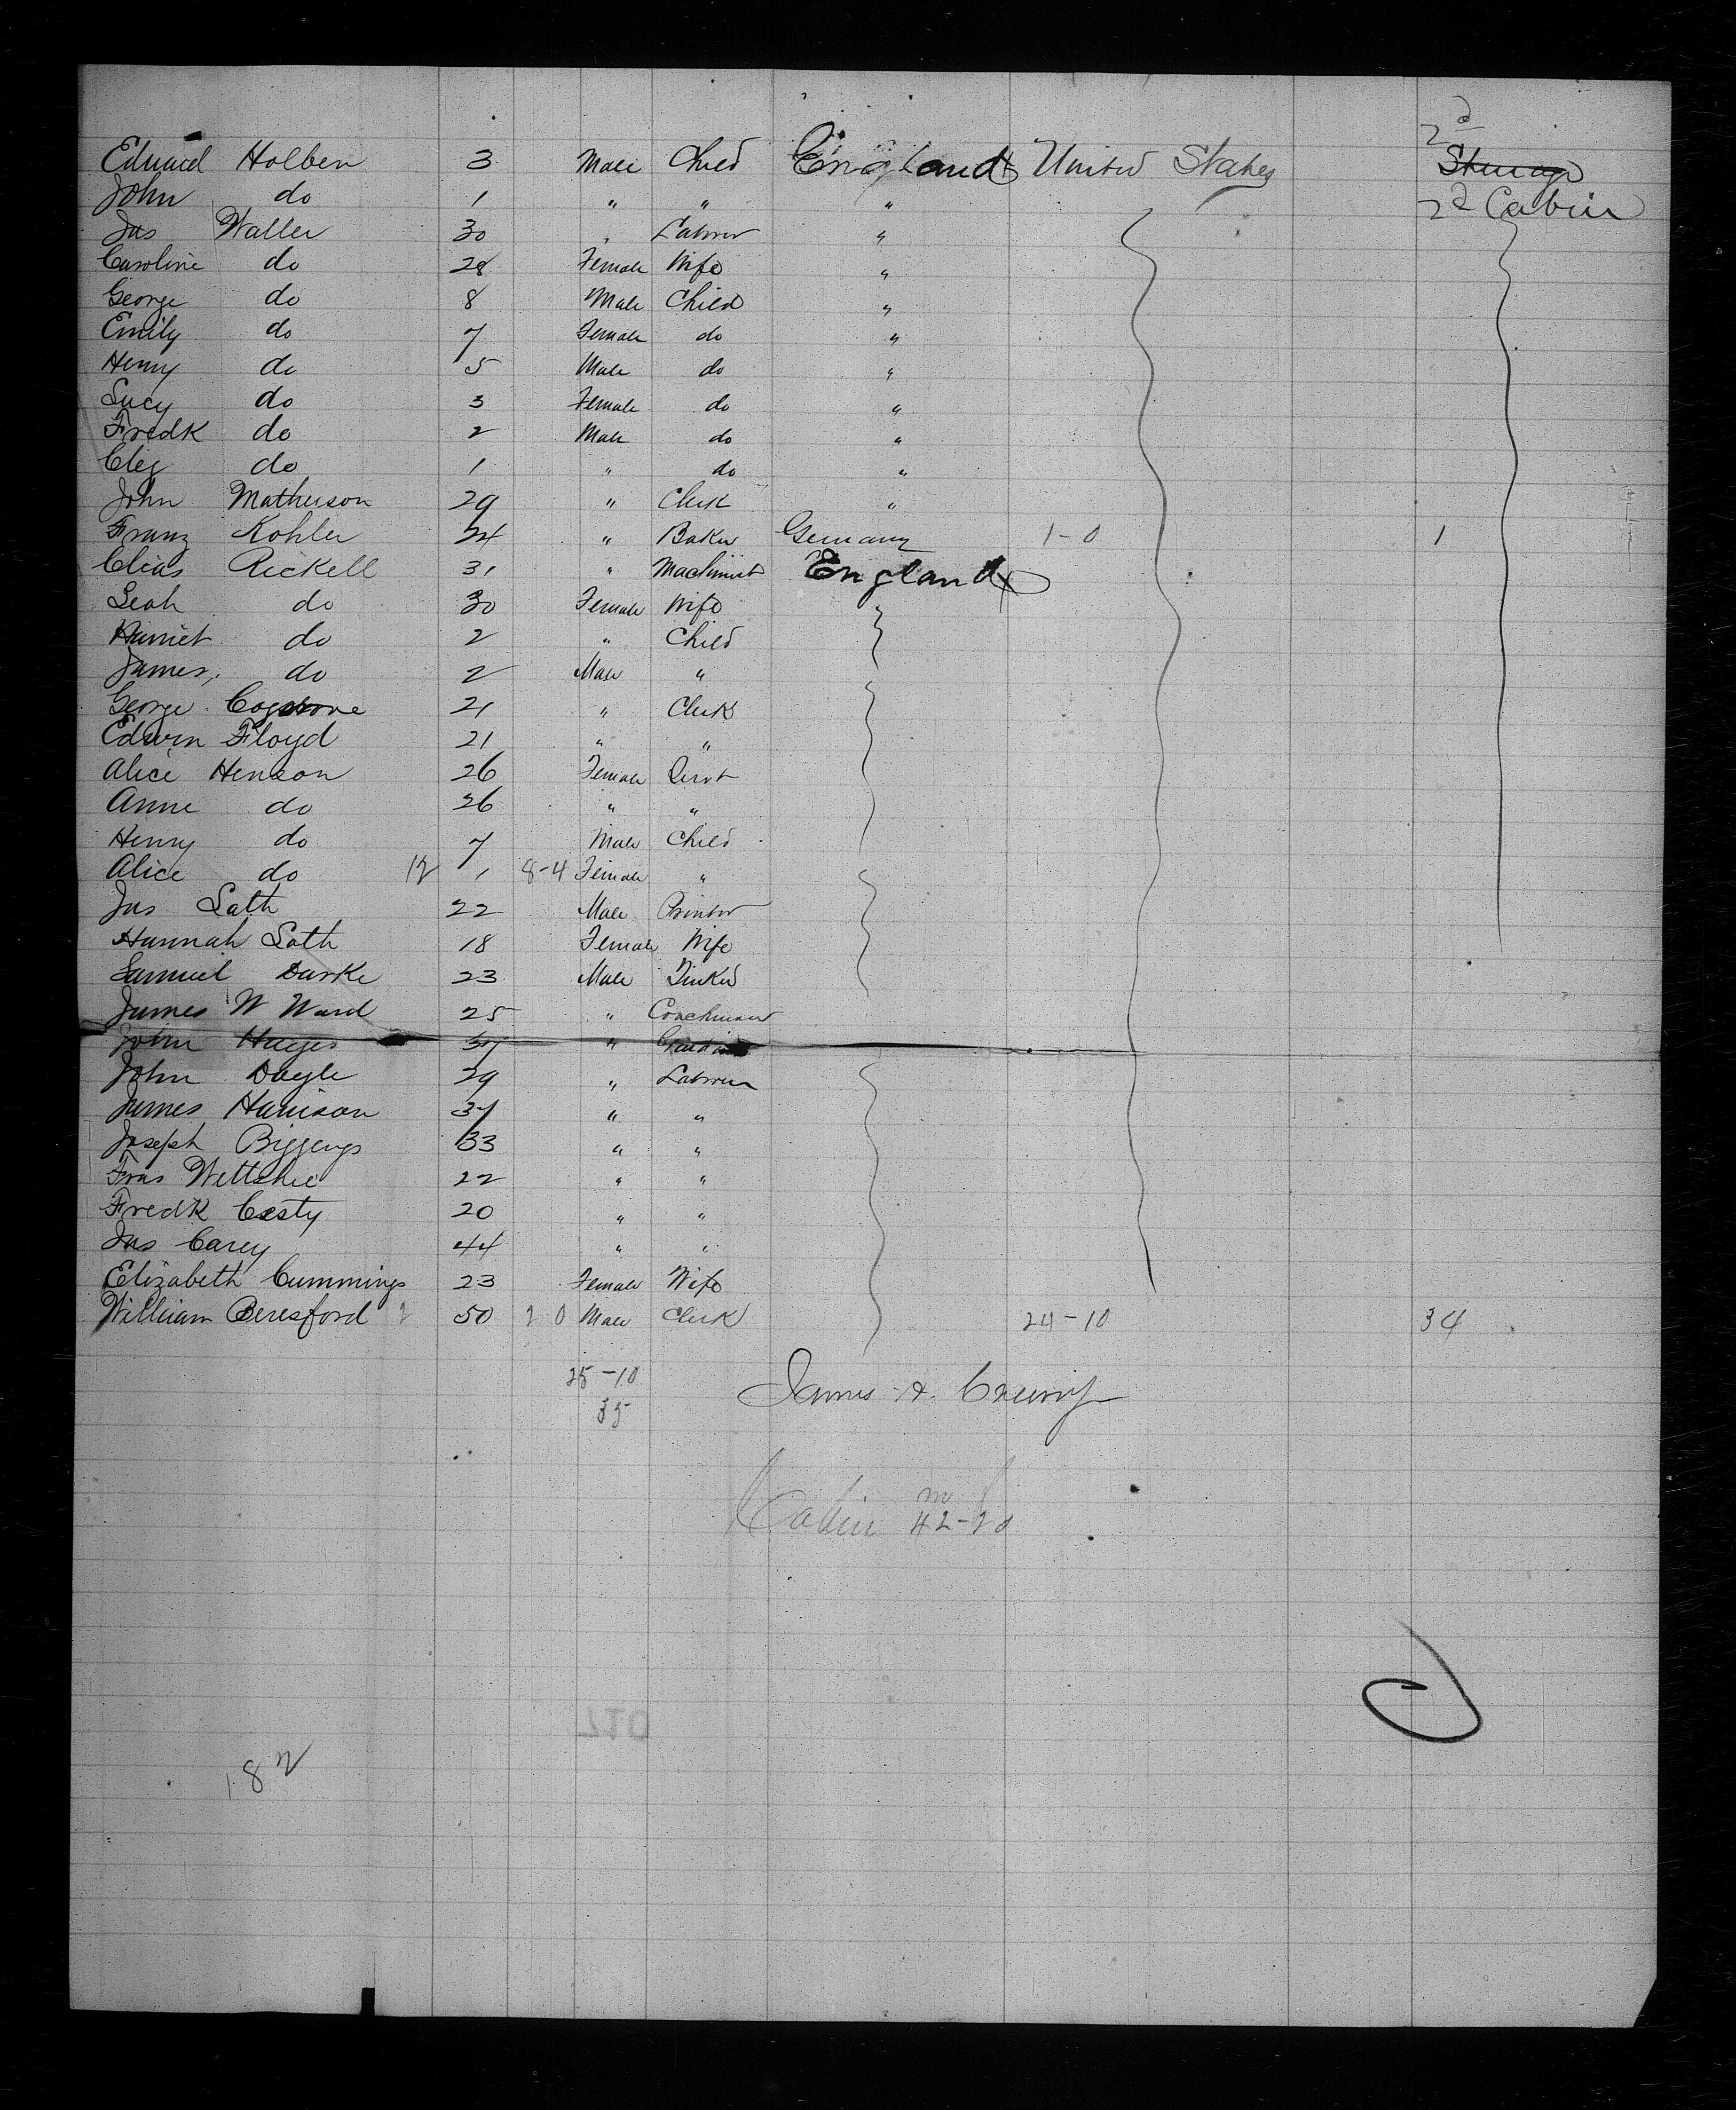 2d
Edward Holben 3 Male Child England United States Steerage
John do 1 " " " 2d Cabin
Jas Waller 30 " Labrer "
Caroline do 28 Female Wife "
George do 8 Male Child "
Emily do 7 Female do "
Henry do 5 Male do "
Lucy do 3 Female do "
Fredk do 2 Male do "
do 1 " do "
John Matheison 29 " Clerk "
Franz Kohler 24 " Baker Germany 1-0 1
Elias Rickell 31 " Machinist England
Leah do 30 Female Wife
Harriet do 2 " Child
James do 2 Male "
George 21 " Clerk
Edwin Floyd 21 " "
Alice Henson 26 Female Servt
Anne do 26 " "
Henry do 7 Male Child
Alice do 12 1 8-4 Female "
Jas Lath 22 Male Printer
Hannah Lath 18 Female Wife
Samuel Darke 23 Male
James W Ward 25 " Coachman
John Hayes "
John Doyle 29 " Labrer
James Harrison 37 " "
Joseph Biggengs 33 " "
Fras 22 " "
Fredk Casty 20 " "
Jas Carey 44 " "
Elizabeth Cummings 23 Female Wife
William Beresford 2 50 2 0 Male Clerk 24-10 34
25-10
35
James A.
m
Cabin 42-20
182